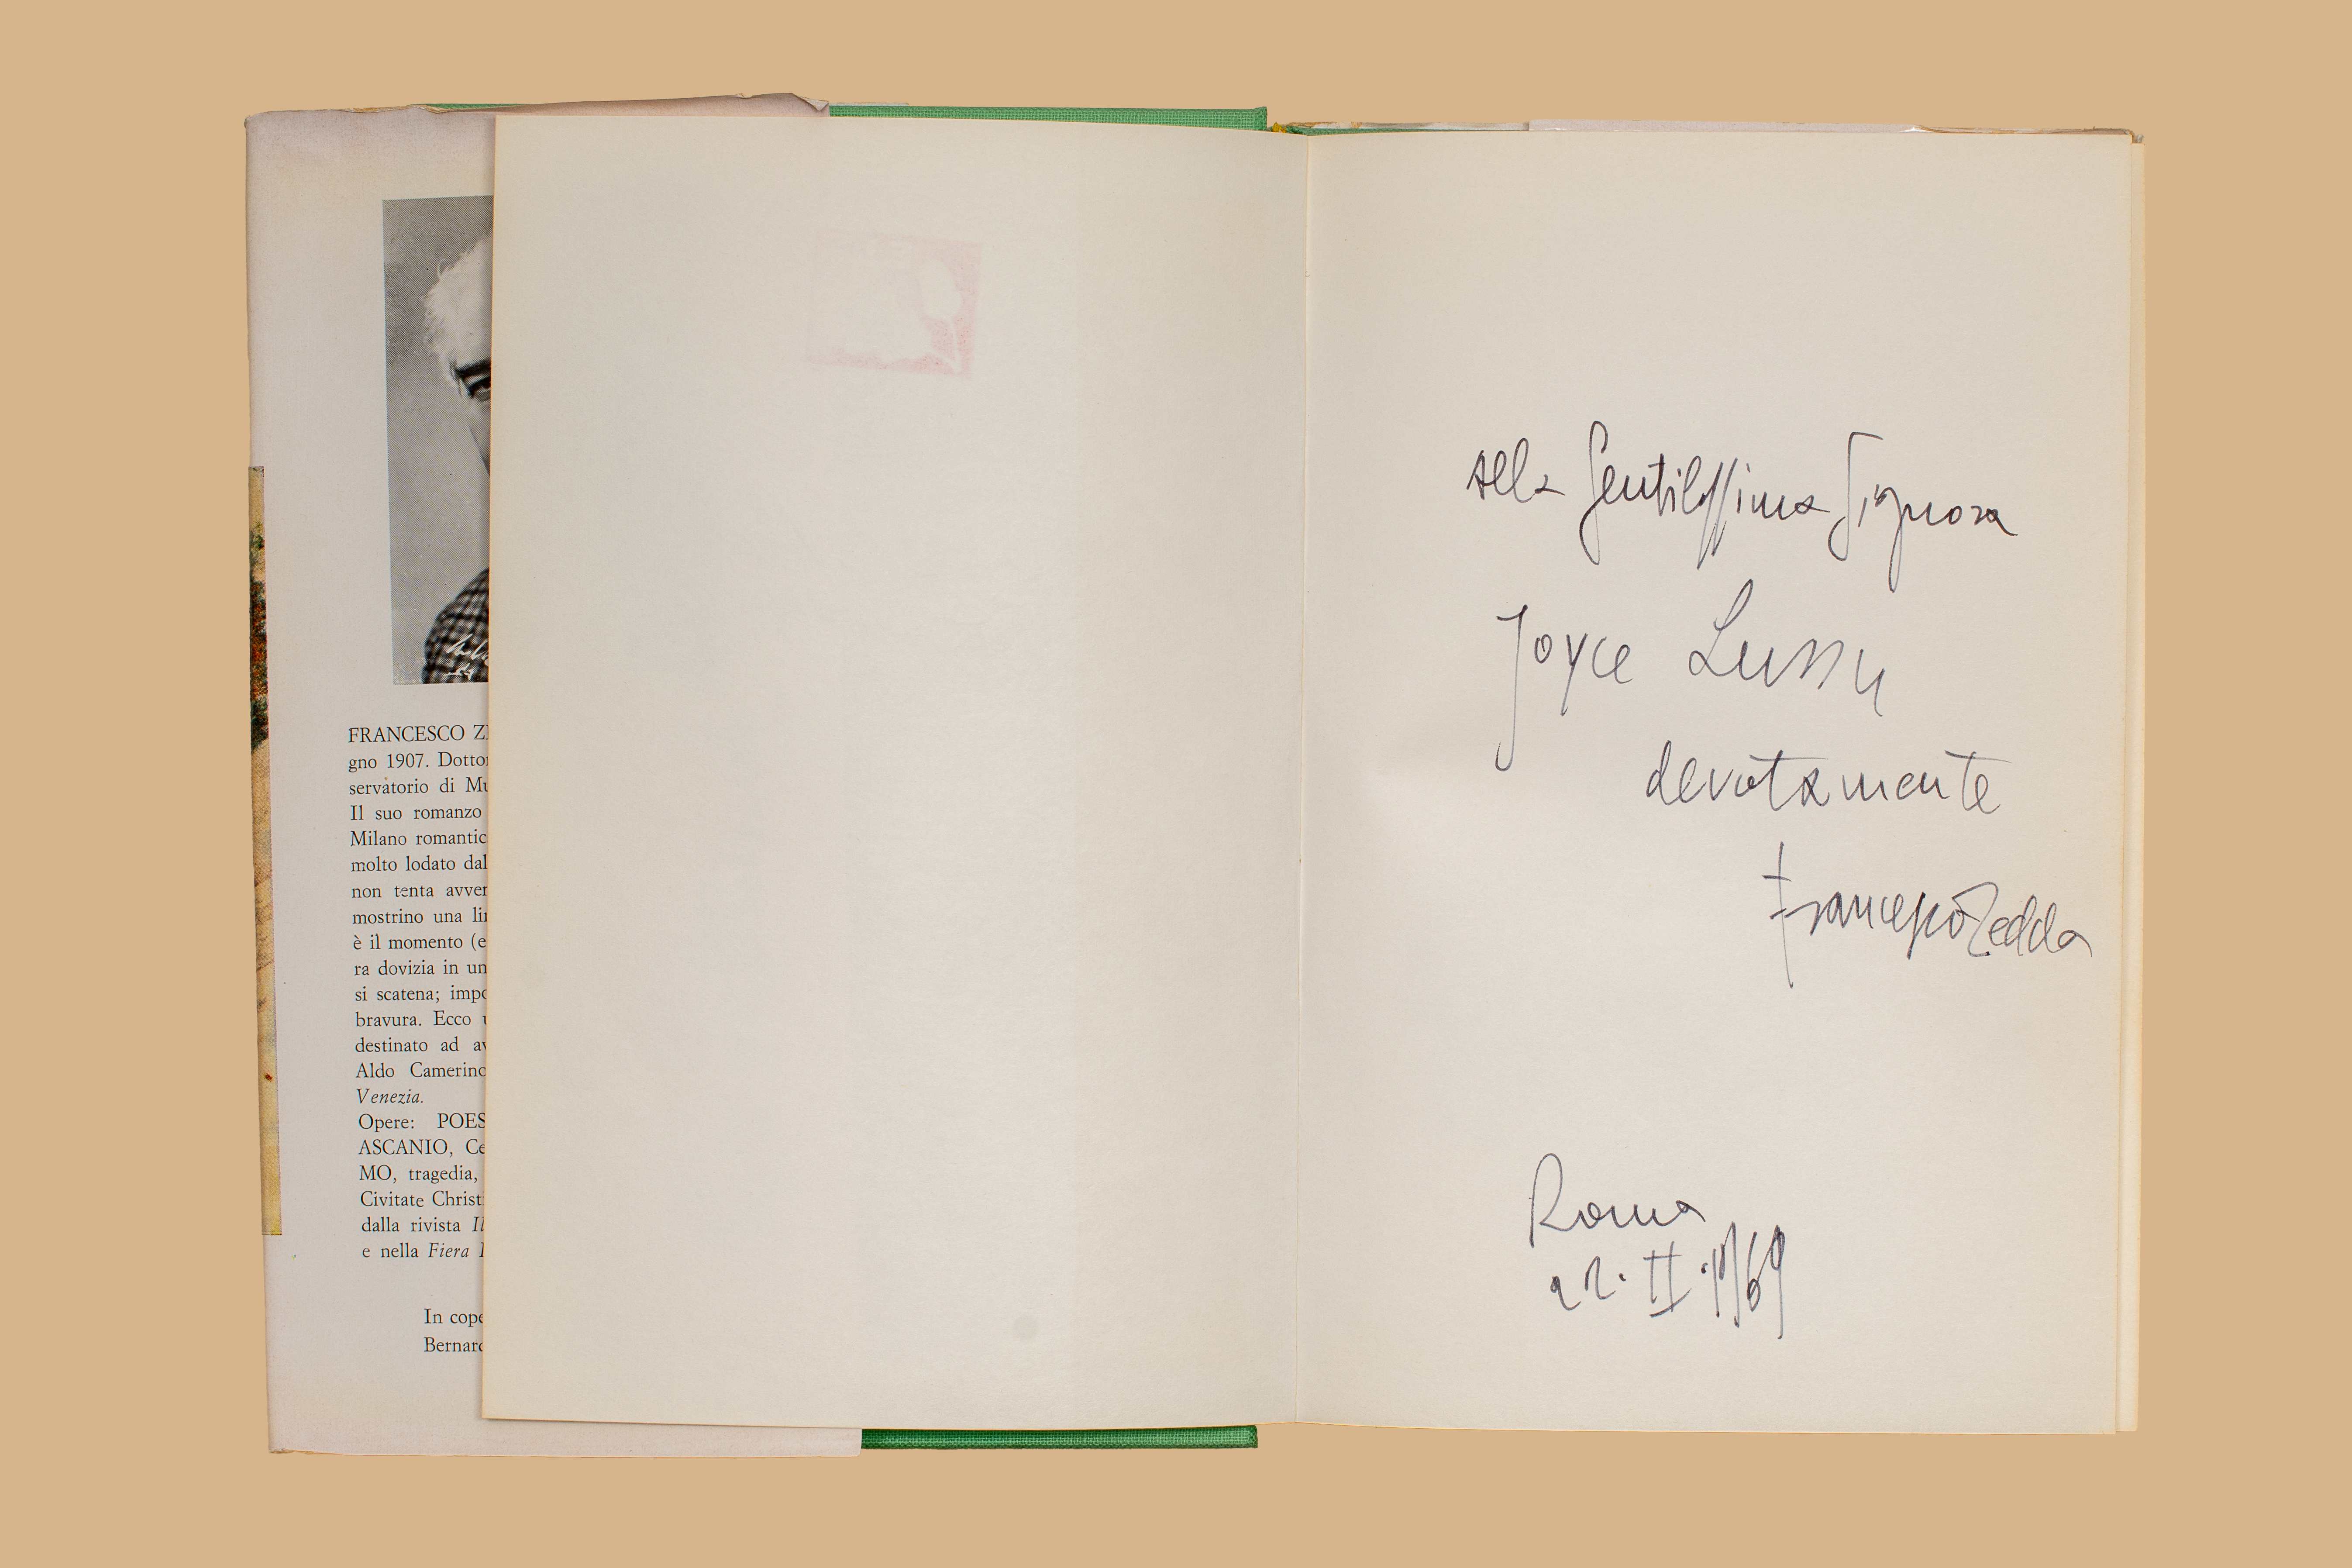 FRANCESCO
gno 1907.
servatorio di
Il suo romanzo
Milano
molto lodato
non tenta
mostrino una
è il momento
ra dovizia in
si scatena;
bravura. Ecco
destinato ad
Aldo
Venezia.
Opere:
ASCANIO,
MO, tragedia,
Civitate
dalla rivista
e nella Fiera
In
alla Gentilissima Signora
Joyce Lussu
devotamente
Francesco Zedda
Roma
22. II. 1969